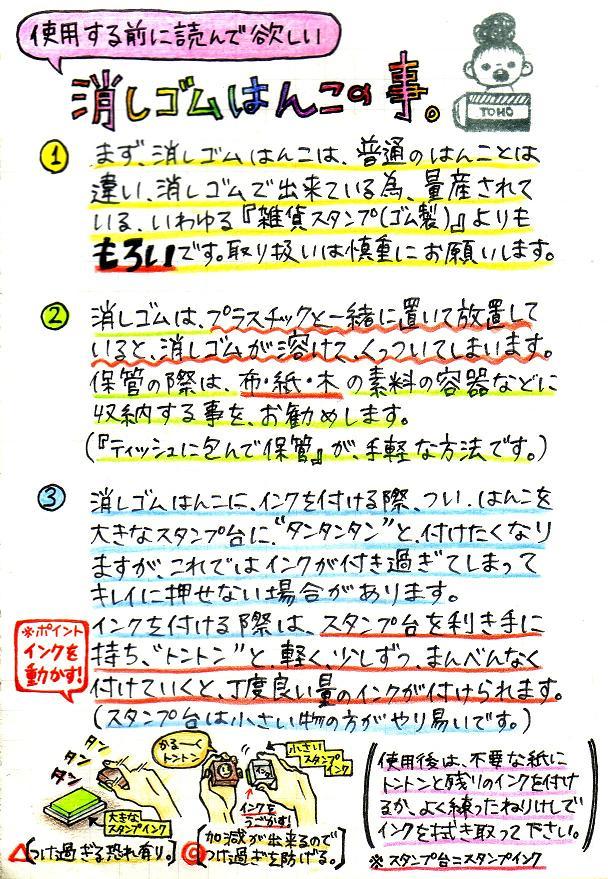 使用する前に読んで欲しい
消しゴムはんこの事。
TOMO
1 まず、消しゴムはんこは、普通のはんことは
違い、消しゴムで出来ている為、量産されて
いる、いわゆる『雑貨スタンプ(ゴム製)』よりも
もろいです。取り扱いは慎重にお願いします。
2 消しゴムは、プラスチックと一緒に置いて放置して
いると、消しゴムが溶けて、くっついてしまいます。
保管の際は、布・紙・木の素料の容器などに
収納する事を、お勧めします。
(『ティッシュに包んで保管』が、手軽な方法です。)
3 消しゴムはんこに、インクを付ける際、つい、はんこを
大きなスタンプ台に、"タンタンタン"と、付けたくなり
ますが、これではインクが付き過ぎてしまって
キレイに押せない場合があります。
インクを付ける際は、スタンプ台を利き手に
持ち、"トントン"と、軽く、少しずつ、まんべんなく
付けていくと、丁度良い量のインクが付けられます。
(スタンプ台は小さい物の方がやり易いです。)
※ポイント
インクを
動かす!
タン
タン
タン
大きな
スタンプインク
△[つけ過ぎる恐れ有り。]
かる〜く
トントン
小さい
スタンプ
インク
インク
インクを
うごかす!
◎[加減が出来るので
つけ過ぎを防げる。]
(使用後は、不要な紙に
トントンと残りのインクを付け
るか、よく練ったねりけしで
インクを拭き取って下さい。)
※スタンプ台=スタンプインク